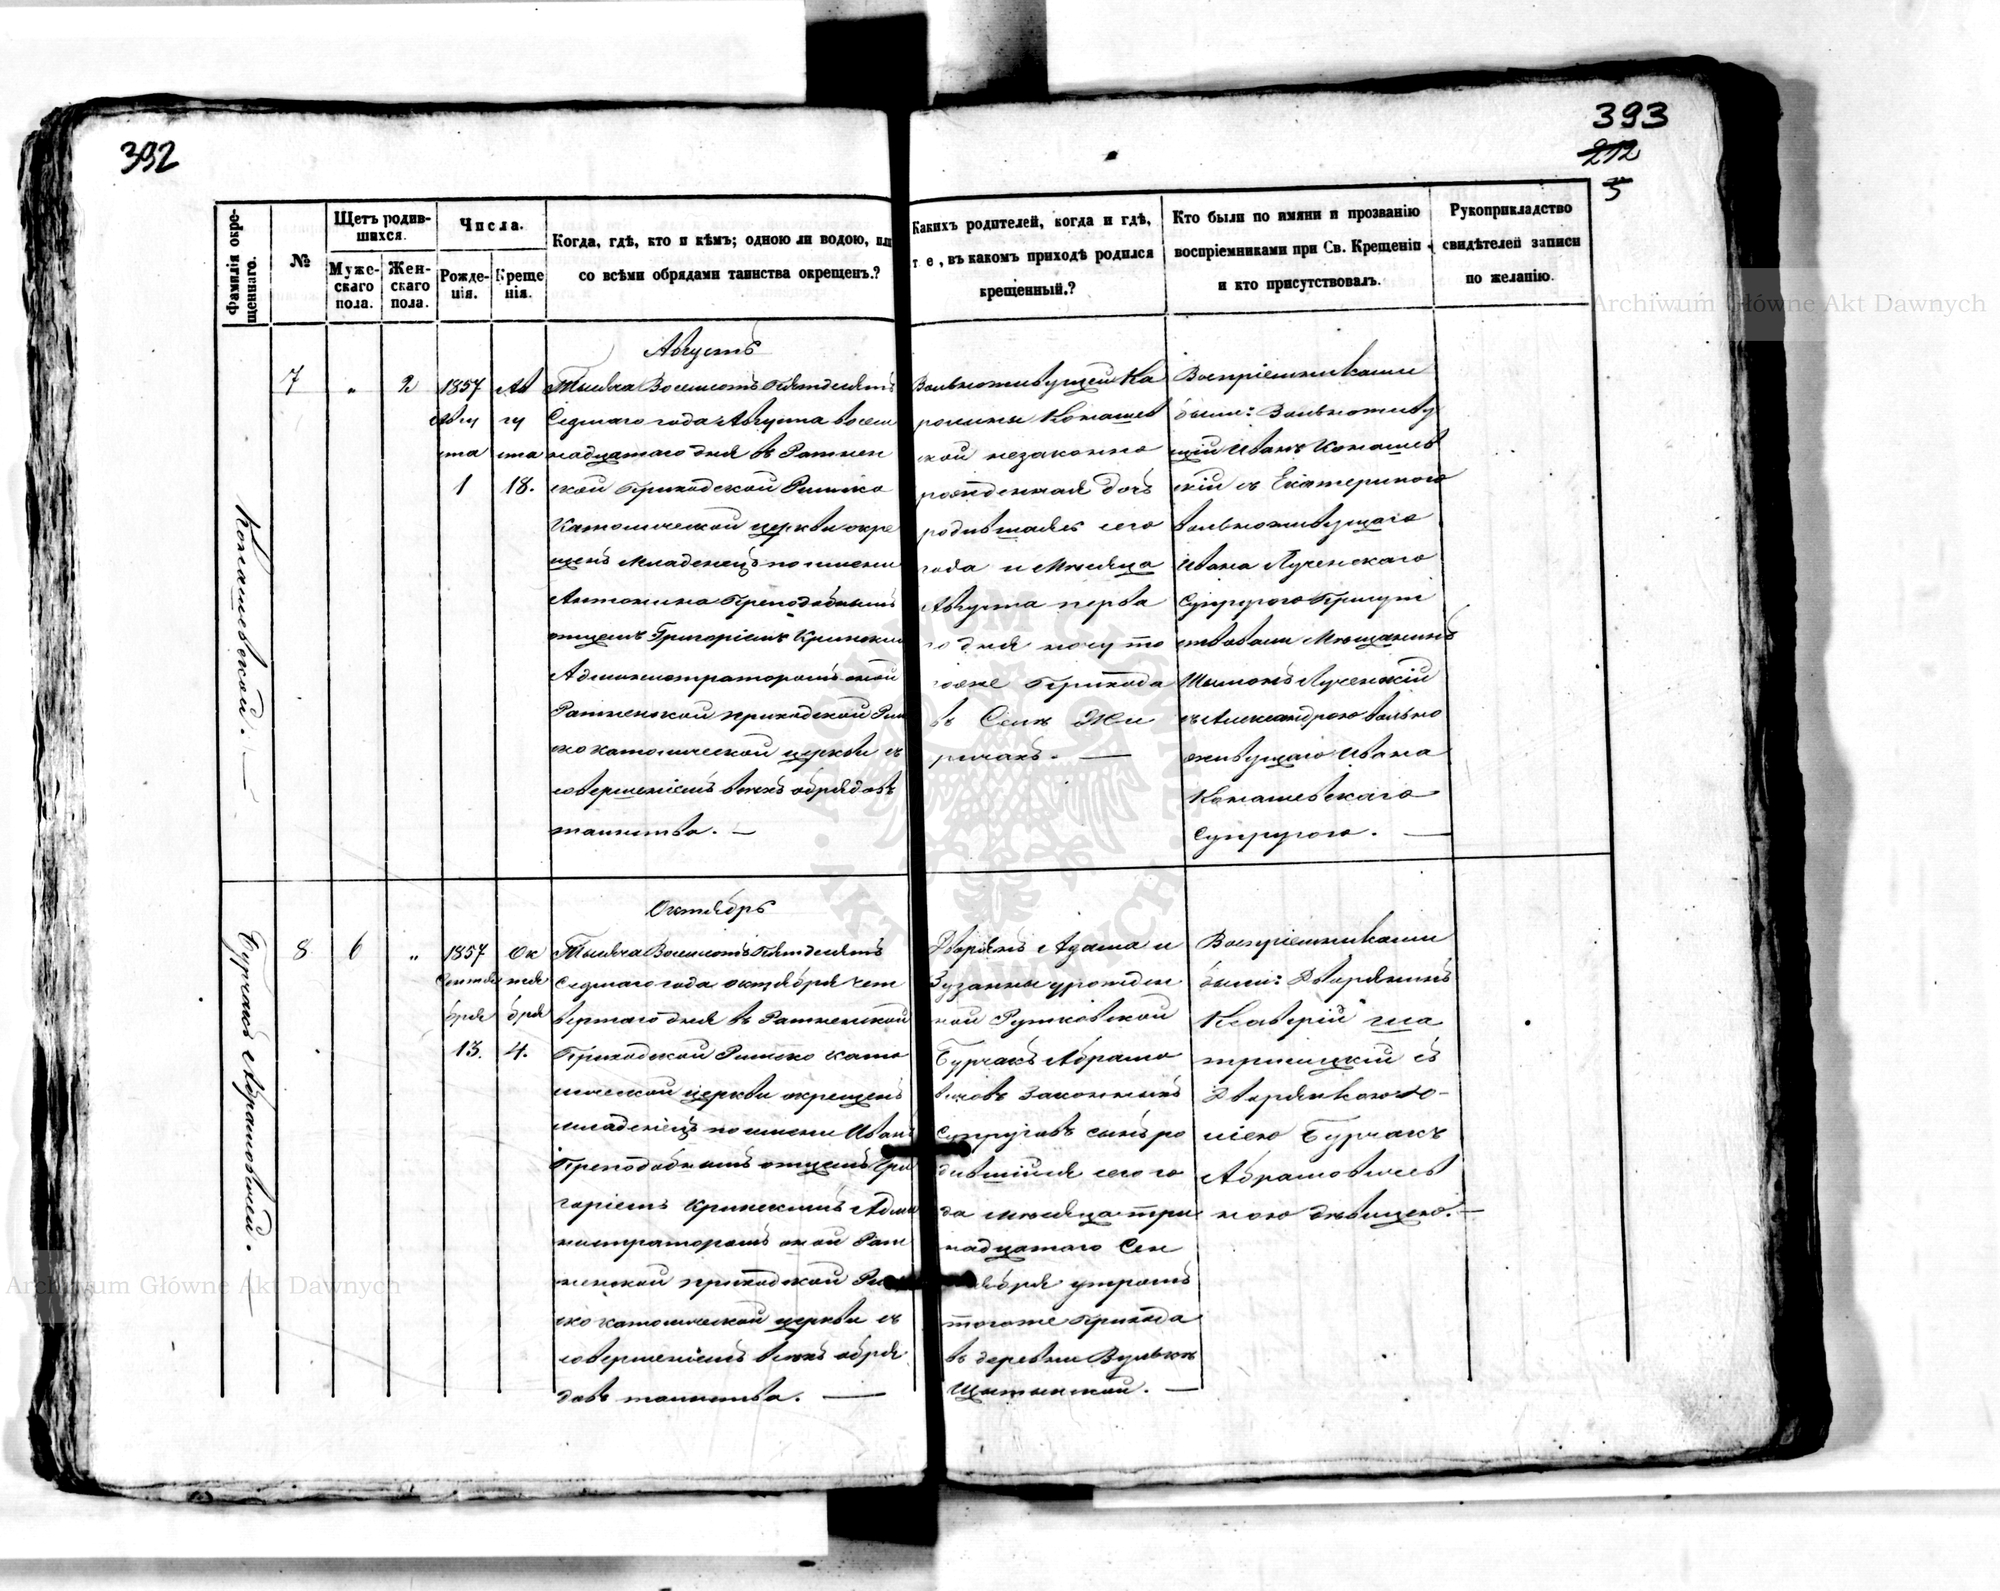 392
393
212
5
Фамилія окре-
щеннаго.
№
Щетъ родив-
шихся.
Муже-
скаго
пола.
Жен-
скаго
пола.
Числа.
Рожде-
нія.
Креще
нія.
Когда, гдѣ, кто и кѣмъ; одною ли водою, или
со всѣми обрядами таинства окрещенъ.?
Какихъ родителей, когда и гдѣ,
т е, въ какомъ приходѣ родился
крещенный.?
Кто были по имяни и прозванію
воспріемниками при Св. Крещеніи
и кто присутствовалъ.
Рукоприкладство
свидѣтелей записи
по желанію.
Конашевской. —
7
"
2
1857
Авгу
ста
1
Ав
гу
ста
18.
Августъ
Тысяча Восемсотъ Пятдесятъ
Седмаго года Августа восем
надцатаго дня въ Ратнен
ской Приходской Римско
Католической церкви окре
щенъ Младенецъ по имени
Антонина Преподобнымъ
отцемъ Григоріемъ Кринским
Администраторомъ оной
Ратненской приходской Рим
ско католической церкви съ
совершеніемъ всѣхъ обрядовъ
таинства. —
Вольноживущей Ка
ролины Конашев
ской незаконно
рожденная дочь
родившаясь сего
года и Мѣсяца
Августа перва
го дня ночу то
гоже Прихода
въ Селѣ Жи
ричахъ. —
Воспріемниками
были: Вольноживу
щій Иванъ Конашев
скій съ Екатериною
вольноживущаго
Ивана Лученскаго
Супругою Присут
ствовали Мѣщанинъ
Шимонъ Лученскій
съ Александрою вольно
живущаго Ивана
Конашевскаго
Супругою. —
Бурчакъ Абрамовичей. —
8
6
"
1857
Сентя
бря
13.
Ок
тя
бря
4.
Октябрь
Тысяча Восемсотъ Пятдесятъ
Седмаго года Октября чет
вертаго дня въ Ратненской
Приходской Римско като
лической церкви окрещенъ
младенецъ по имени Иванъ
Преподобнымъ отцемъ Гри
горіемъ Кринскимъ Адми
нистраторомъ оной Рат
ненской приходской Рим
ско католической церкви съ
совершеніемъ всѣхъ обря
довъ таинства. —
Дворянъ Адама и
Зузанны урожден
ной Рутковской
Бурчакъ Абрамо
вичовъ Законныхъ
Супруговъ сынъ ро
дившійся сего го
да мѣсяца три
надцатаго Сен
тября утромъ
тогоже Прихода
въ деревни Вулькѣ
Щитинской. —
Воспріемниками
были: Дворянинъ
Ксаверій
съ
Дворянкою Ю-
ліею Бурчакъ
Абрамовичев
ною дѣвицею. —
Archiwum Główne Akt Dawnych
Archiwum Główne Akt Dawnych